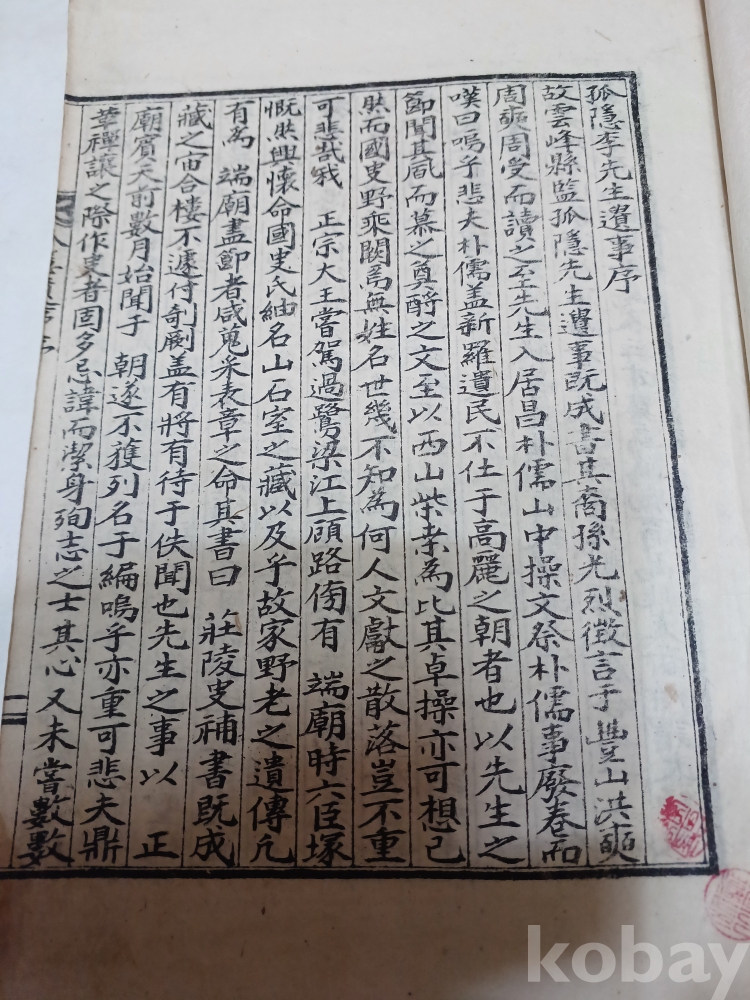 孤隱李先生遺事序
故雲峰縣監孤隱先生遺事旣成書其裔孫光烈徵言于豊山洪奭
周奭周受而讀之至先生入居昌朴儒山中操文祭朴儒事廢卷而
嘆曰嗚乎悲夫朴儒盖新羅遺民不仕于高麗之朝者也以先生之
節聞其風而慕之奠酹之文至以西山柴桑為比其卓操亦可想已
然而國史野乘闕焉無姓名世幾不知為何人文獻之散落豈不重
可悲哉我 正宗大王嘗駕過鷺梁江上顧路傍有 端廟時六臣塚
慨然興懷命國史氏紬名山石室之藏以及乎故家野老之遺傳凢
有為 端廟盡節者咸蒐采表章之命其書曰 莊陵史補書旣成
藏之宙合樓不遽付剞劂盖有將有待于佚聞也先生之事以 正
廟賓天前數月始聞于 朝遂不獲列名于編嗚乎亦重可悲夫鼎
革禪讓之際作史者固多忌諱而潔身殉志之士其心又未嘗數數
kobay